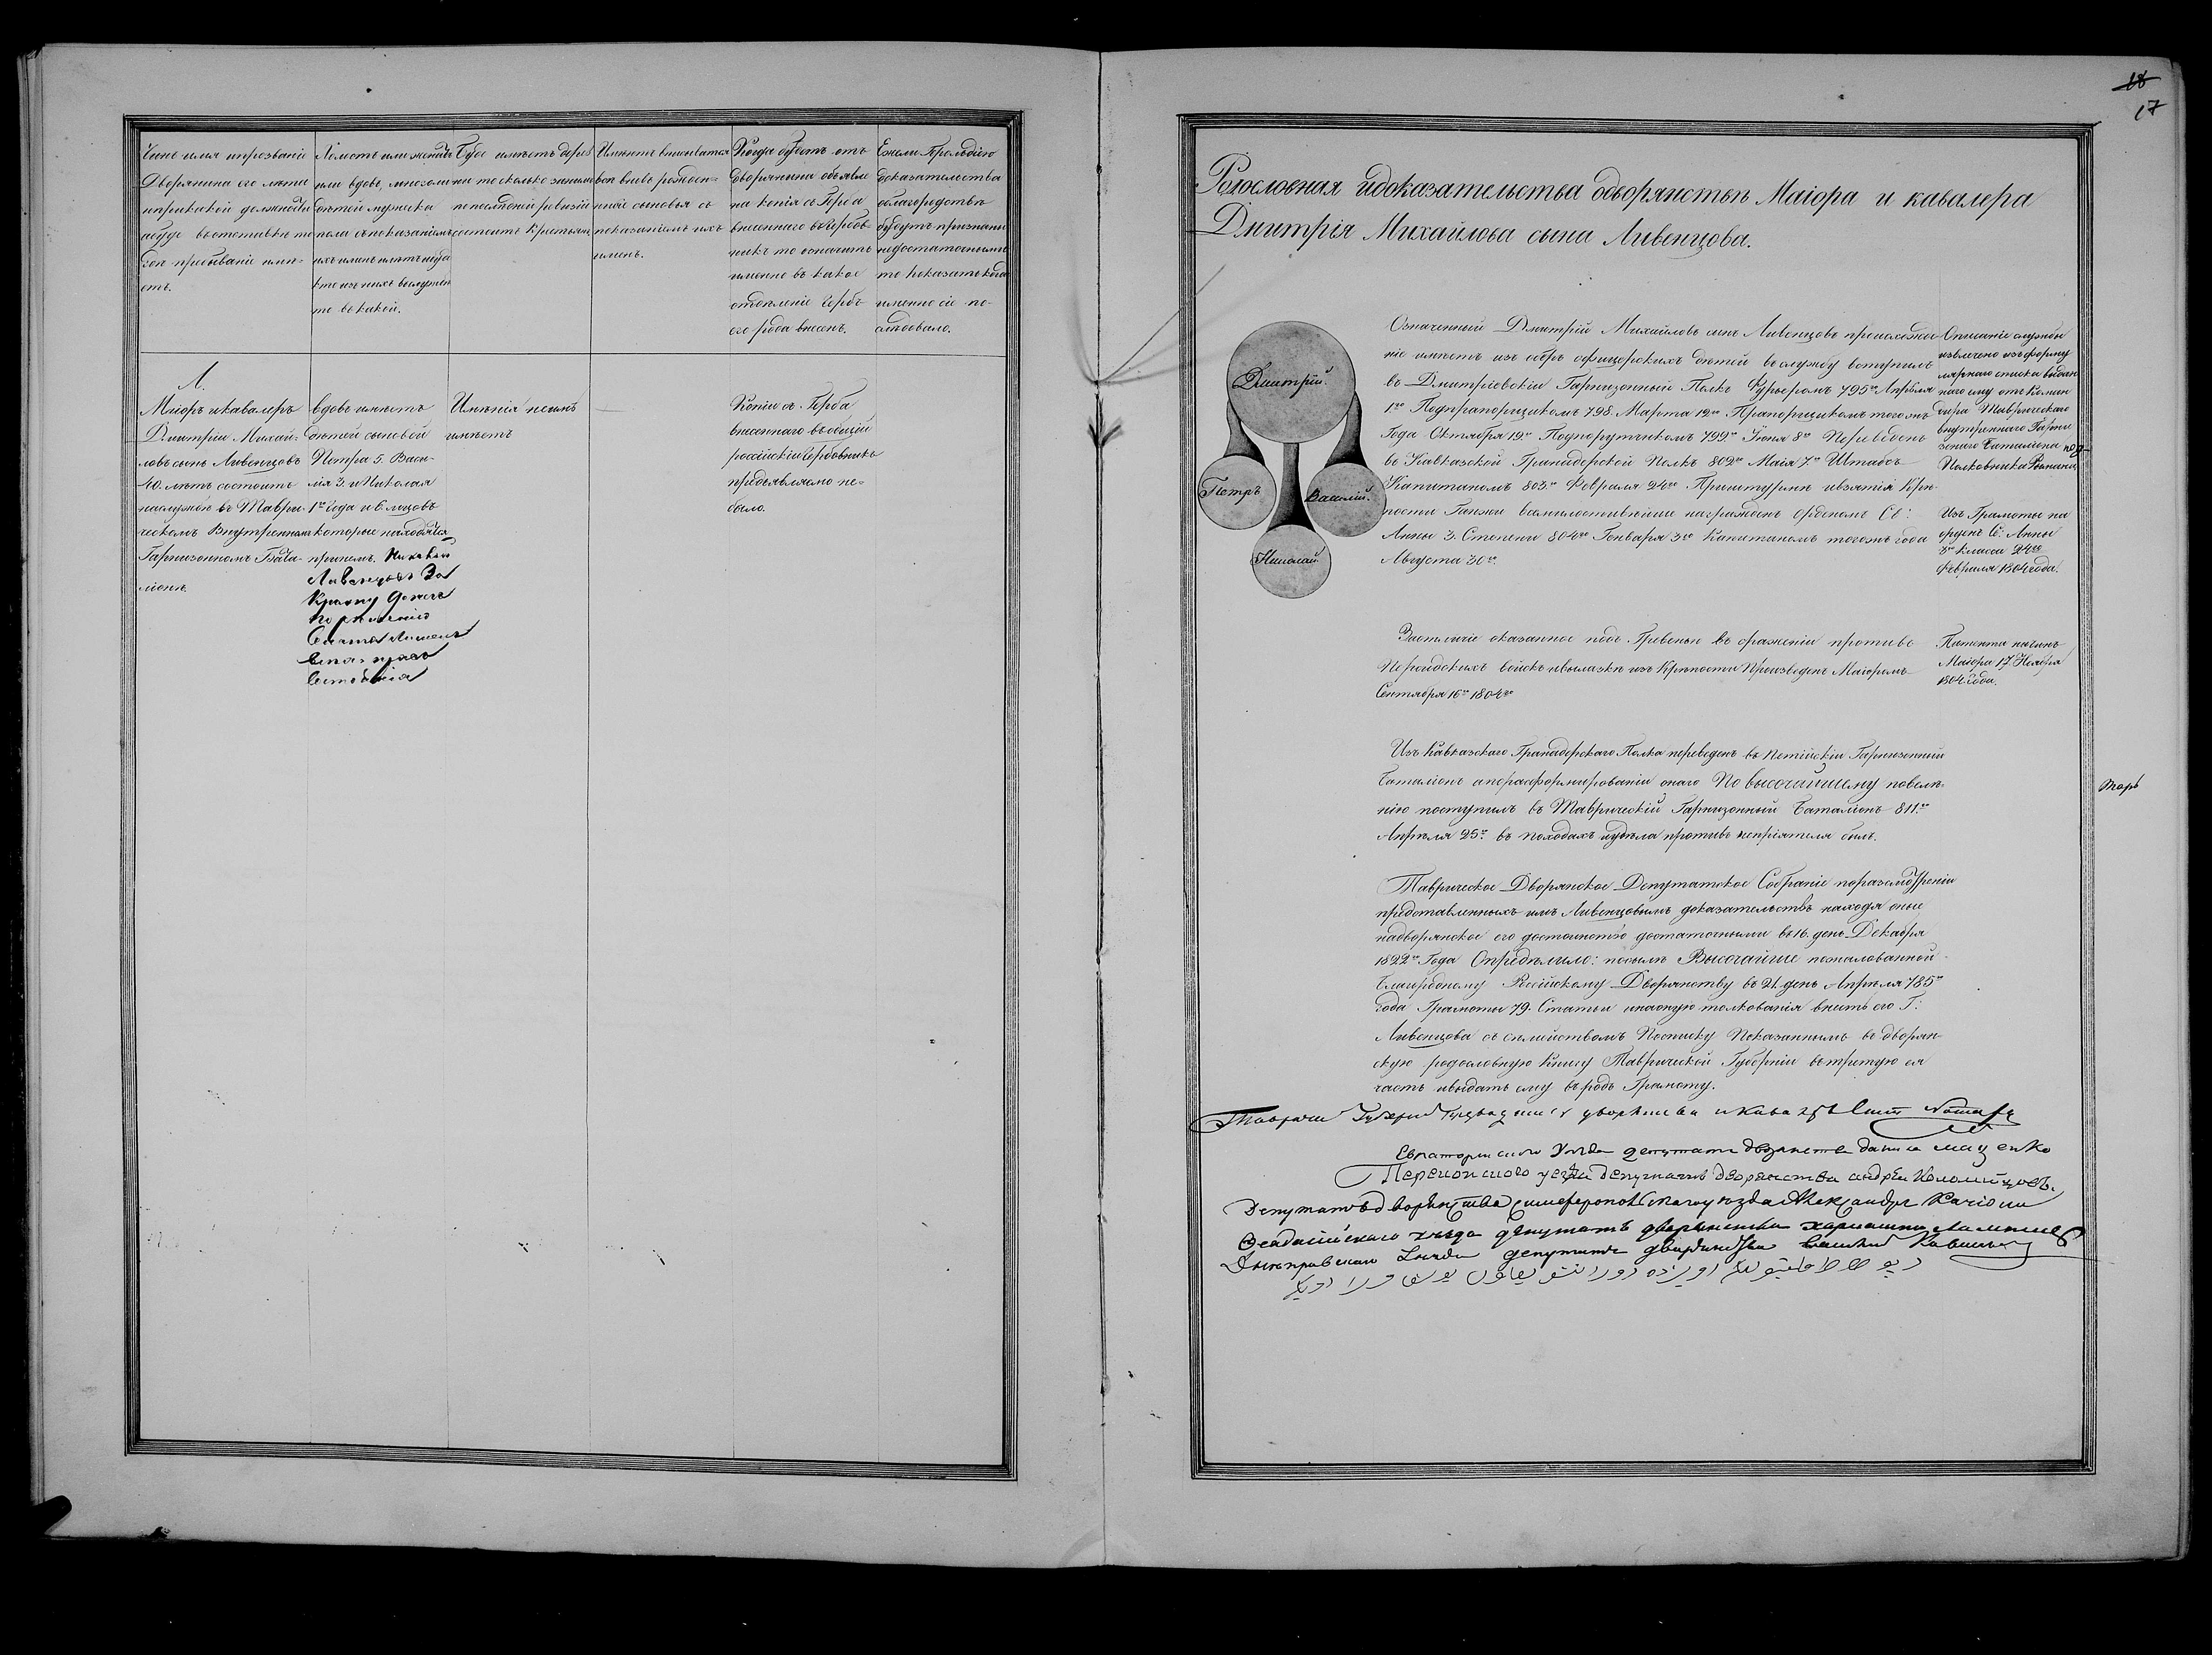 18
17
Чинъ имя ипрозваніе
Дворянина его лѣта
иприкакой должности
агуде вотставкѣ то
гдѣ пребываніе имѣ-
етъ.
Холостъ или женатъ
или вдовъ, многоли
дѣтей мужеска
пола съпоказаніемъ
ихъ именъ илѣтъ игдѣ
кто изъ нихъ въслужбѣ
то въ какой.
Буде имѣетъ дерев
ни то сколько заними
попослѣдней ревизіи
состоитъ крестьянъ
Имѣютъ вписыватся
всѣ вновь рожден-
ные сыновья съ
показаніемъ ихъ
именъ.
Когда будетъ отъ
дворянина объявле
на копія съ Герба
внесеннаго въГербов-
никъ то означить
именно въ какое
отдѣленіе Гербъ
его рода внесенъ.
Ежели Герольдіею
доказательства
облагородствѣ
будутъ признаны
недостаточными
то показать когда
именно сіе по-
слѣдовало.
Л.
Маіоръ икавалеръ
Дмитрій Михай-
ловъ сынъ Ливенцовъ
40. лѣтъ состоитъ
наслужбѣ въ Таври-
ческомъ Внутреннемъ
Гарнизонномъ Бата-
ліонѣ.
вдовъ имѣетъ
дѣтей сыновей
Петра 5. Васи-
лія 3. и Николая
1го года
которые находятся
принемъ. Николай
Ливенцовъ За
Кражу денегъ
по рѣшенію
Сената лишенъ
всѣхъ правъ
состоянія
Имѣнія неимѣ
имѣетъ
Копіи съ Герба
внесеннаго въобщій
россійскій Гербовникъ
предъявляемо не-
было.
Родословная идоказательства одворянствѣ Маіора и кавалера
Дмитрія Михайлова сына Ливенцова.
Дмитрій.
Петръ
Василій.
Николай.
Означенный Дмитрій Михайловъ сынъ Ливенцовъ происхожде
ніе имѣетъ изъ оберъ офицерскихъ дѣтей въслужбу вступилъ
въ Дмитріевскій Гарнизонный Полкъ Фурьеромъ 795го Апрѣля
1го Подпрапорщикомъ 798. Марта 12го Прапорщикомъ тогожъ
Года Октября 19го Подпоручикомъ 799го Іюня 8го Переведенъ
въ Кавказской Гранадерской Полкъ 802го Маія 7го Штабсъ
Капитаномъ 803го Февраля 24го Приштурмѣ ивзятіи Крѣ-
пости Ганжи всемилостивѣйше награжденъ орденомъ Св:
Анны 3. Степени 804го Генваря 3го Капитаномъ тогожъ года
Августа 30го.
Описаніе службы
извлечено изъ форму
лярнаго списка выдан
наго ему отъ Коман
дира Таврическаго
внутренняго Гарни
зоннаго Баталіона под
Полковника
Изъ Грамоты на
орденъ Св. Анны
3го класса 24го
Февраля 1804 года.
Заотличіе оказанное подъ Гревенью въ сраженіи противъ
Персидскихъ войскъ ивылазкѣ изъ Крѣпости Произведенъ Маіоромъ
Сентября 16го 1804го
Патента начинъ
Маіора 17 Ноября
1804 года.
Изъ Кавказскаго Гранадерскаго Полка переведенъ въ Потійскій Гарнизонный
Баталіонъ апорасформированіи онаго По высочайшему повелѣ-
нію поступилъ въ Таврическій Гарнизонный Баталіонъ 811го
Апрѣля 25го въ походахъ идѣлахъ противъ непріятеля былъ.
Таврическое Дворянское Депутатское Собраніе поразсмотреніи
представленныхъ имъ Ливенцовымъ доказательствъ находя оные
надворянское его достоинство достаточными въ 16. день Декабря
1822го Года Опредѣлило: посилѣ Высочайше пожалованной
Благородному Россійскому Дворянству въ 21. день Апрѣля 785го
года Грамоты 79. Статьи инаоную толкованія внести его Г:
Ливенцова съ семействомъ Посписку Показаннымъ въ дворян-
скую родословную Книгу Таврической Губерніи въ третую ея
часть ивыдать ему въ родъ Грамоту.
Евпаторискаго Уезда депутатъ дворянства Данила Маценко
Перекопскаго уезда депутатъ дворянства андрей Коломийцовъ.
Депутатъ дворянства Симферопольскаго уезда Александръ
Феодосійскаго уезда депутатъ дворянства
Днепровскаго уезда депутатъ дворянства василій